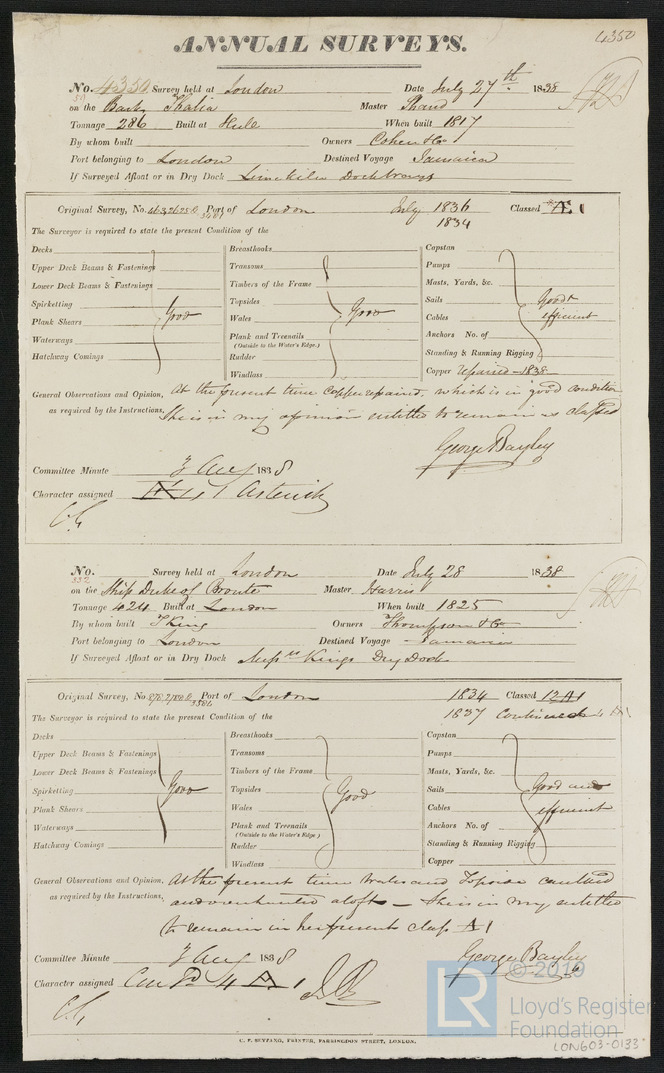 4350
ANNUAL SURVEYS.
No. 4350 Survey held at London Date July 27th 1838
on the Bark Thalia Master Shand
Tonnage 286 Built at Hull When built 1817
By whom built Owners Cohen & Co
Port belonging to London Destined Voyage Jamaica
If Surveyed Afloat or in Dry Dock Limekiln Dock
Original Survey, No. Port of London July 1836 Classed Æ1
1834
The Surveyor is required to state the present Condition of the
Decks Breasthooks Capstan
Upper Deck Beams & Fastenings Transoms Pumps
Lower Deck Beams & Fastenings Timbers of the Frame Masts, Yards, &c.
Spirketting Topsides Sails Good &
Plank Shears Good Wales Good Cables efficient
Waterways Plank and Treenails Anchors No. of
(Outside to the Water's Edge.)
Hatchway Comings Rudder Standing & Running Rigging
Windlass Copper repaired 1838
General Observations and Opinion, At the present time Copper repaired, which is in good condition
as required by the Instructions, She is in my opinion entitled to remain as classed
George Bayley
Committee Minute 3 Aug 1838
Character assigned Asterisk
No. Survey held at London Date July 28 1838
332
on the Ship Duke of Bronte Master Harris
Tonnage 424 Built at London When built 1825
By whom built T King Owners Thompson & Co
Port belonging to London Destined Voyage Jamaica
If Surveyed Afloat or in Dry Dock Messrs Kings Dry Dock
Original Survey, No. Port of London 1834 Classed 12 A1
1837 Continued 4 A1
The Surveyor is required to state the present Condition of the
Decks Breasthooks Capstan
Upper Deck Beams & Fastenings Transoms Pumps
Lower Deck Beams & Fastenings Timbers of the Frame Masts, Yards, &c.
Spirketting Good Topsides Good Sails Good and
Plank Shears Wales Cables efficient
Waterways Plank and Treenails Anchors No. of
(Outside to the Water's Edge.)
Hatchway Comings Rudder Standing & Running Rigging
Windlass Copper
General Observations and Opinion, At the present time Wales and Topside caulked
as required by the Instructions, and overhauled aloft – She is in my entitled
to remain in her present class A1
George Bayley
Committee Minute 3 Aug 1838
Character assigned Contd 4 A 1
C. F. SEYFANG, PRINTER, FARRINGDON STREET, LONDON.
LR © 2019
Lloyd's Register
Foundation
LON603-0133